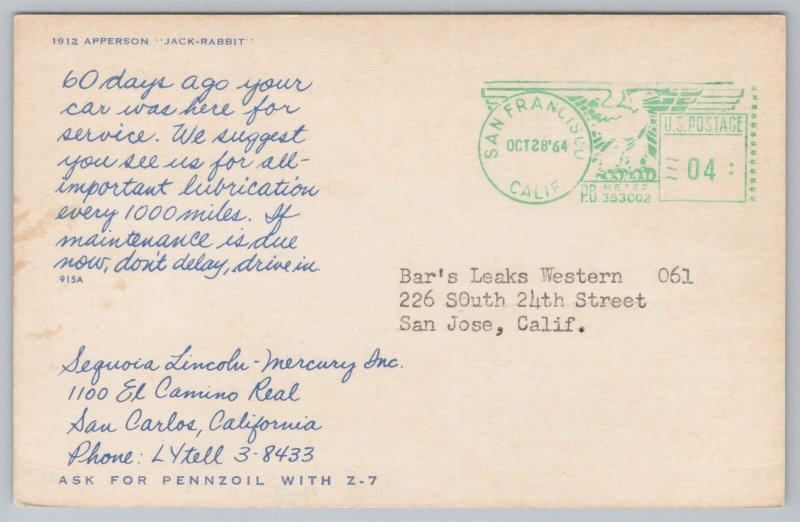 1912 APPERSON "JACK-RABBIT"
60 days ago your
car was here for
service. We suggest
you see us for all-
important lubrication
every 1000 miles. If
maintenance is due
now, don't delay, drive in.
915A
SAN FRANCISCO
OCT 28 '64
CALIF.
U.S. POSTAGE
04
P.B. METER
353002
Bar's Leaks Western 061
226 SOuth 24th Street
San Jose, Calif.
Sequoia Lincoln-Mercury Inc.
1100 El Camino Real
San Carlos, California
Phone: LYtell 3-8433
ASK FOR PENNZOIL WITH Z-7